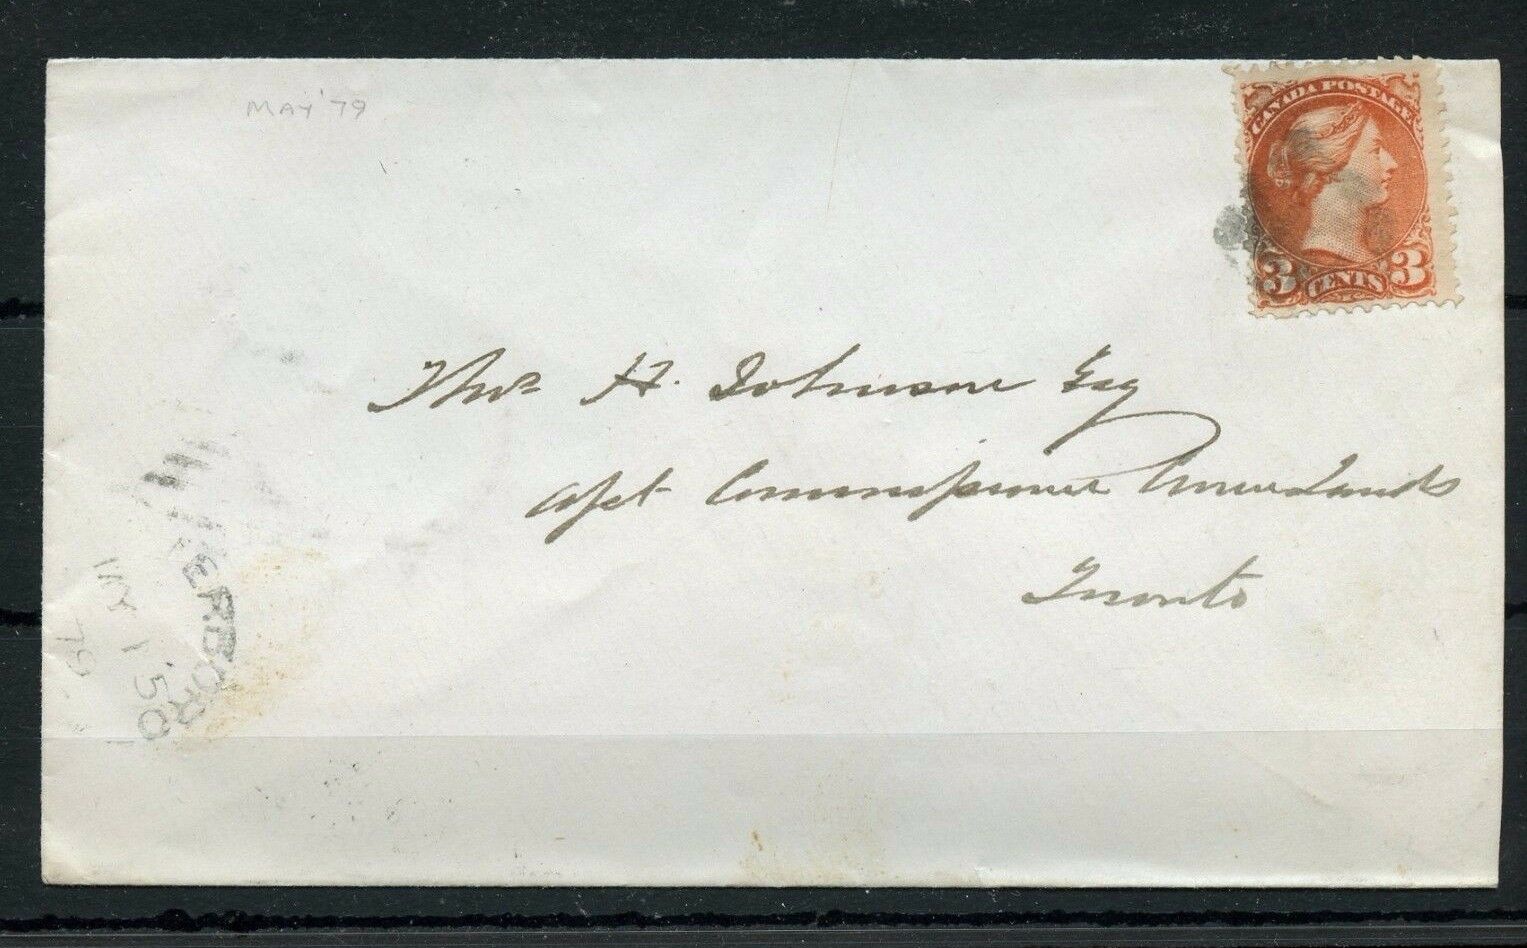 MAY '79
CANADA POSTAGE
3 CENTS 3
Thos H. Johnson Esq
Asst Commissioner Crown Lands
Toronto
TERBORO
MY 1
79